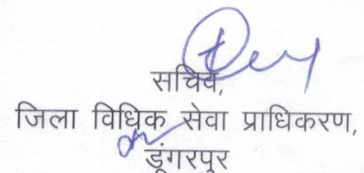 सचिव,
जिला विधिक सेवा प्राधिकरण,
डूंगरपुर